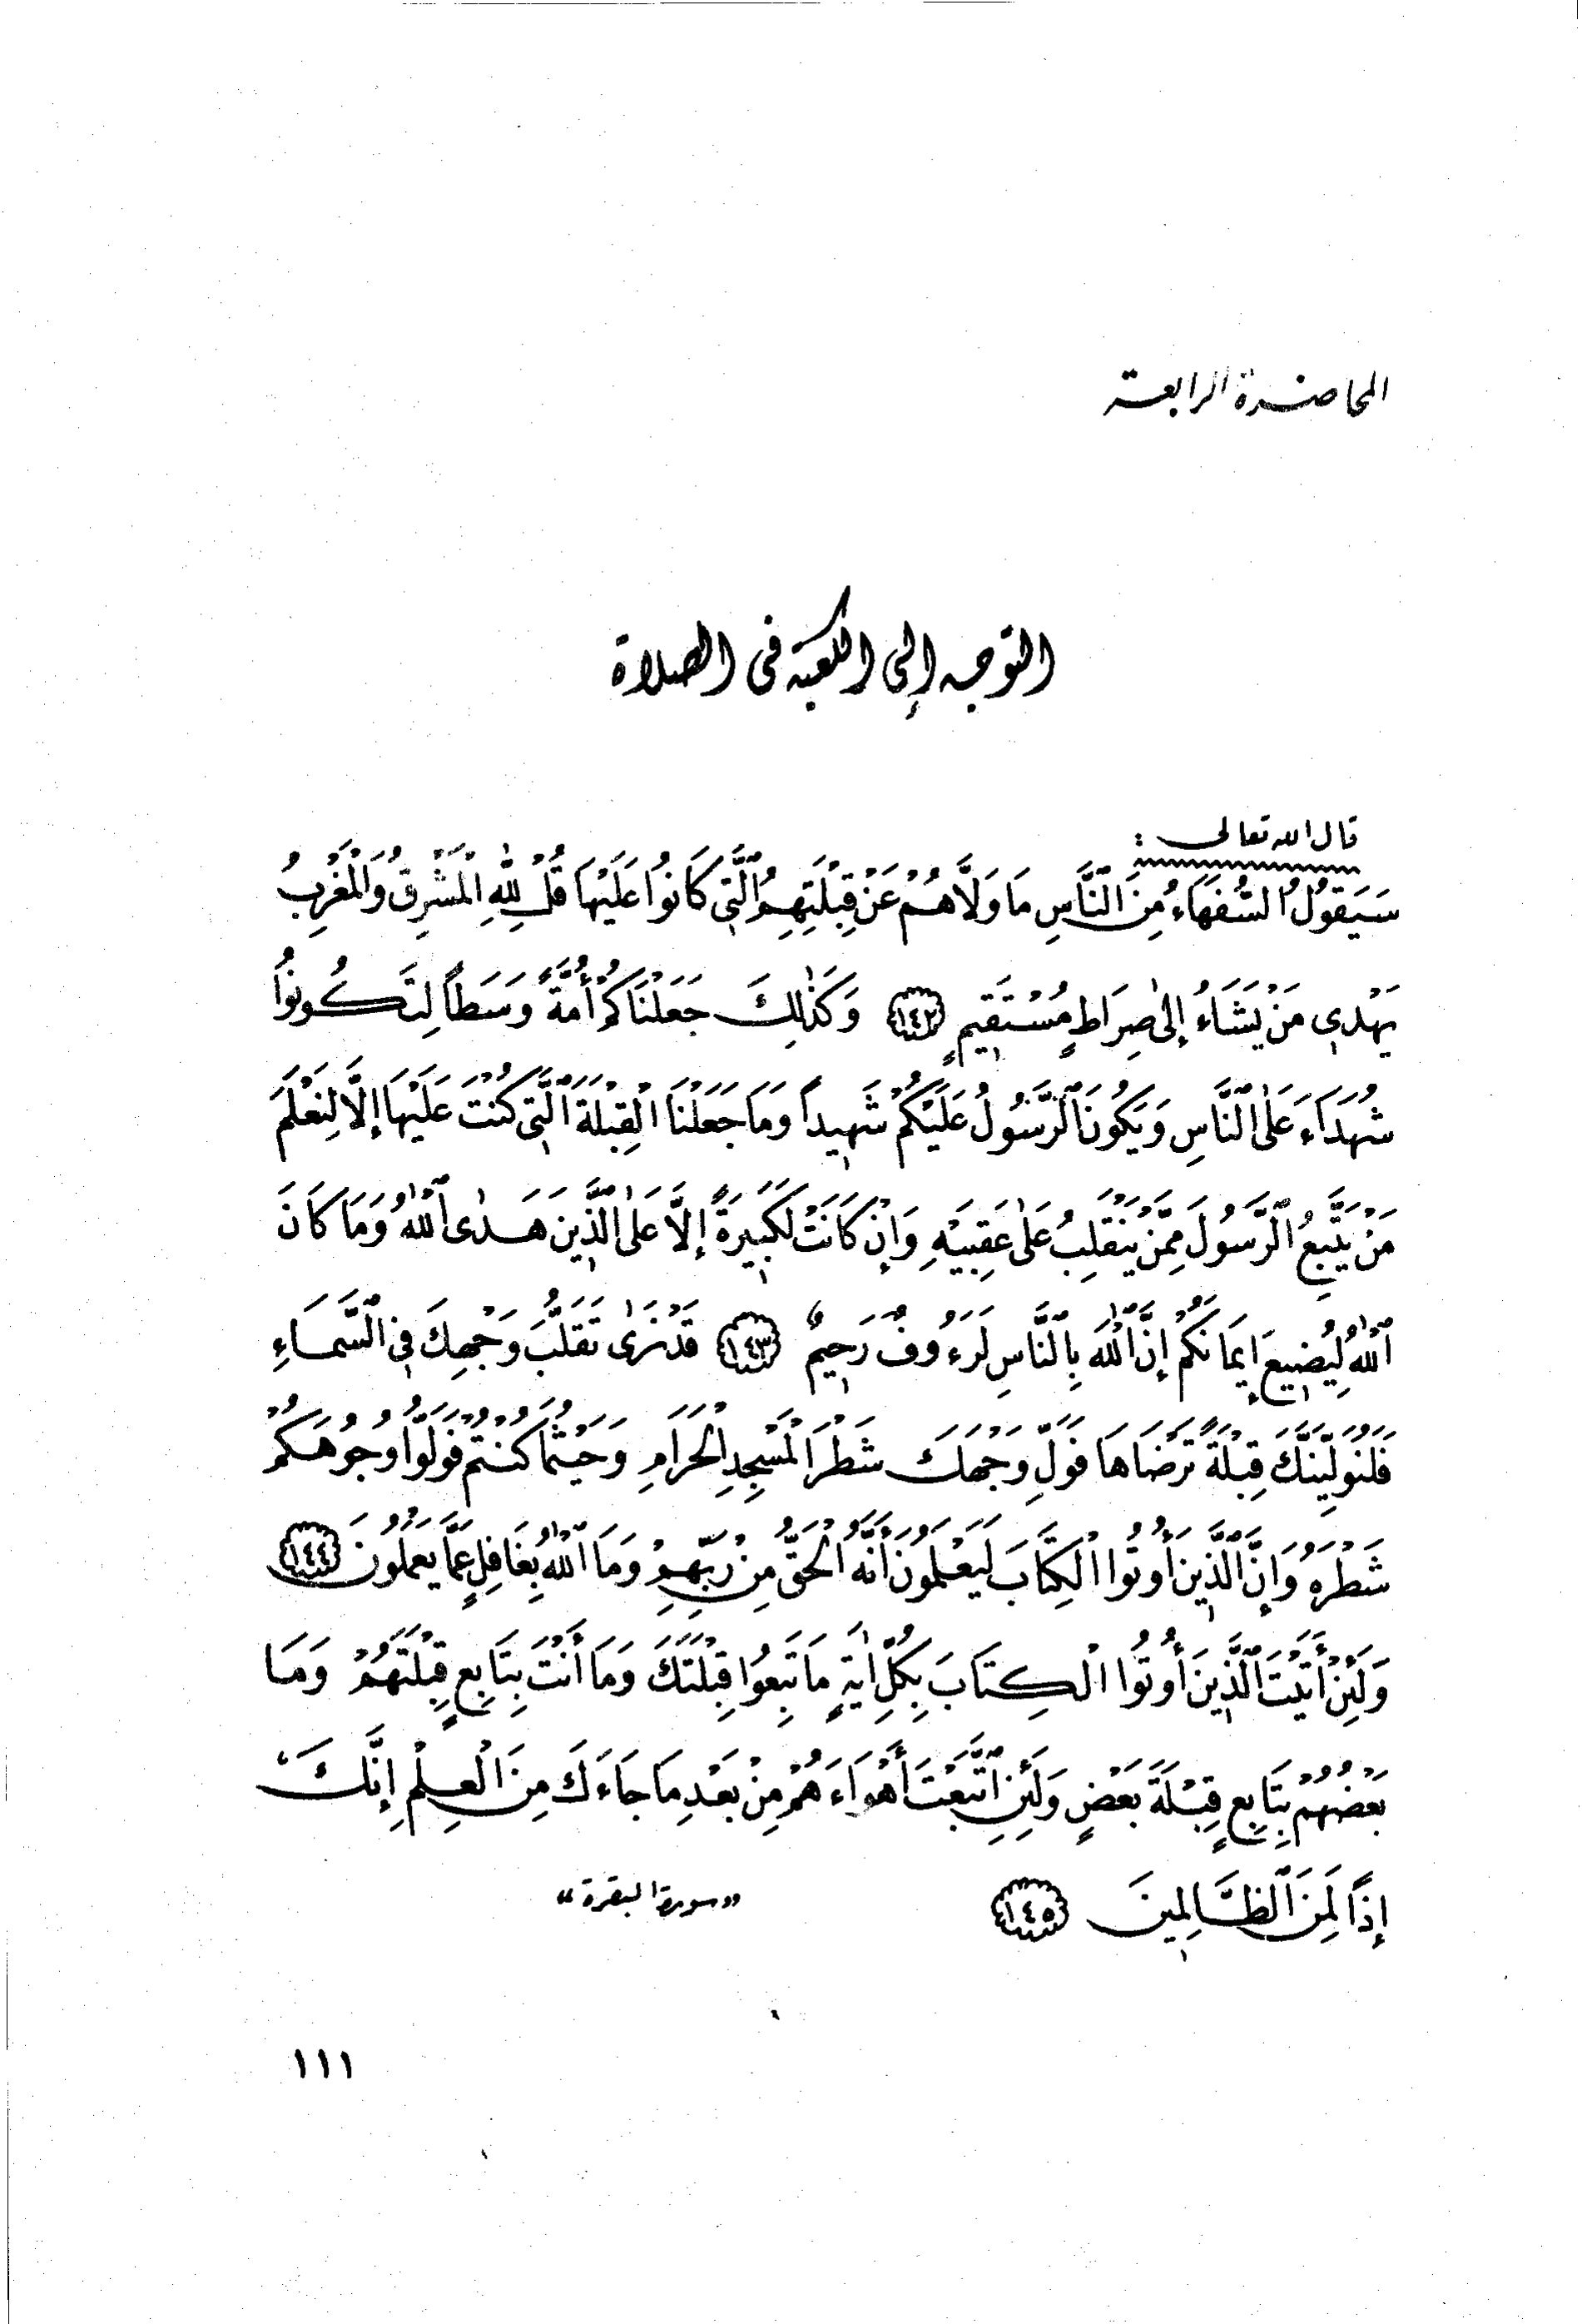 المحاضرة الرابعة
التوجه إلى الكعبة في الصلاة
قال الله تعالى :
سَيَقُولُ السُّفَهَاءُ مِنَ النَّاسِ مَا وَلَّاهُمْ عَنْ قِبْلَتِهِمُ الَّتِي كَانُوا عَلَيْهَا قُلْ لِلَّهِ الْمَشْرِقُ وَالْمَغْرِبُ
يَهْدِي مَنْ يَشَاءُ إِلَىٰ صِرَاطٍ مُسْتَقِيمٍ ﴿١٤٢﴾ وَكَذَٰلِكَ جَعَلْنَاكُمْ أُمَّةً وَسَطًا لِتَكُونُوا
شُهَدَاءَ عَلَى النَّاسِ وَيَكُونَ الرَّسُولُ عَلَيْكُمْ شَهِيدًا وَمَا جَعَلْنَا الْقِبْلَةَ الَّتِي كُنْتَ عَلَيْهَا إِلَّا لِنَعْلَمَ
مَنْ يَتَّبِعُ الرَّسُولَ مِمَّنْ يَنْقَلِبُ عَلَىٰ عَقِبَيْهِ وَإِنْ كَانَتْ لَكَبِيرَةً إِلَّا عَلَى الَّذِينَ هَدَى اللَّهُ وَمَا كَانَ
اللَّهُ لِيُضِيعَ إِيمَانَكُمْ إِنَّ اللَّهَ بِالنَّاسِ لَرَءُوفٌ رَحِيمٌ ﴿١٤٣﴾ قَدْ نَرَىٰ تَقَلُّبَ وَجْهِكَ فِي السَّمَاءِ
فَلَنُوَلِّيَنَّكَ قِبْلَةً تَرْضَاهَا فَوَلِّ وَجْهَكَ شَطْرَ الْمَسْجِدِ الْحَرَامِ وَحَيْثُمَا كُنْتُمْ فَوَلُّوا وُجُوهَكُمْ
شَطْرَهُ وَإِنَّ الَّذِينَ أُوتُوا الْكِتَابَ لَيَعْلَمُونَ أَنَّهُ الْحَقُّ مِنْ رَبِّهِمْ وَمَا اللَّهُ بِغَافِلٍ عَمَّا يَعْمَلُونَ ﴿١٤٤﴾
وَلَئِنْ أَتَيْتَ الَّذِينَ أُوتُوا الْكِتَابَ بِكُلِّ اٰيَةٍ مَا تَبِعُوا قِبْلَتَكَ وَمَا أَنْتَ بِتَابِعٍ قِبْلَتَهُمْ وَمَا
بَعْضُهُمْ بِتَابِعٍ قِبْلَةَ بَعْضٍ وَلَئِنِ اتَّبَعْتَ أَهْوَاءَهُمْ مِنْ بَعْدِ مَا جَاءَكَ مِنَ الْعِلْمِ إِنَّكَ
إِذًا لَمِنَ الظَّالِمِينَ ﴿١٤٥﴾ «سورة البقرة»
١١١